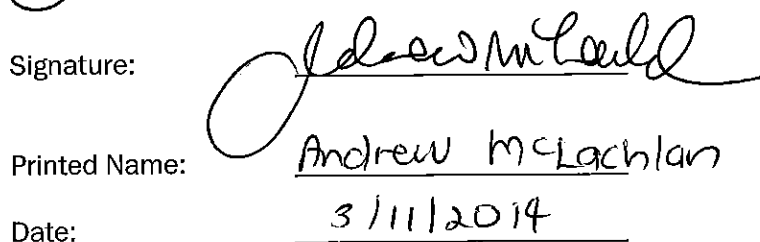 Signature:
Printed Name: Andrew McLachlan
Date: 3/11/2014